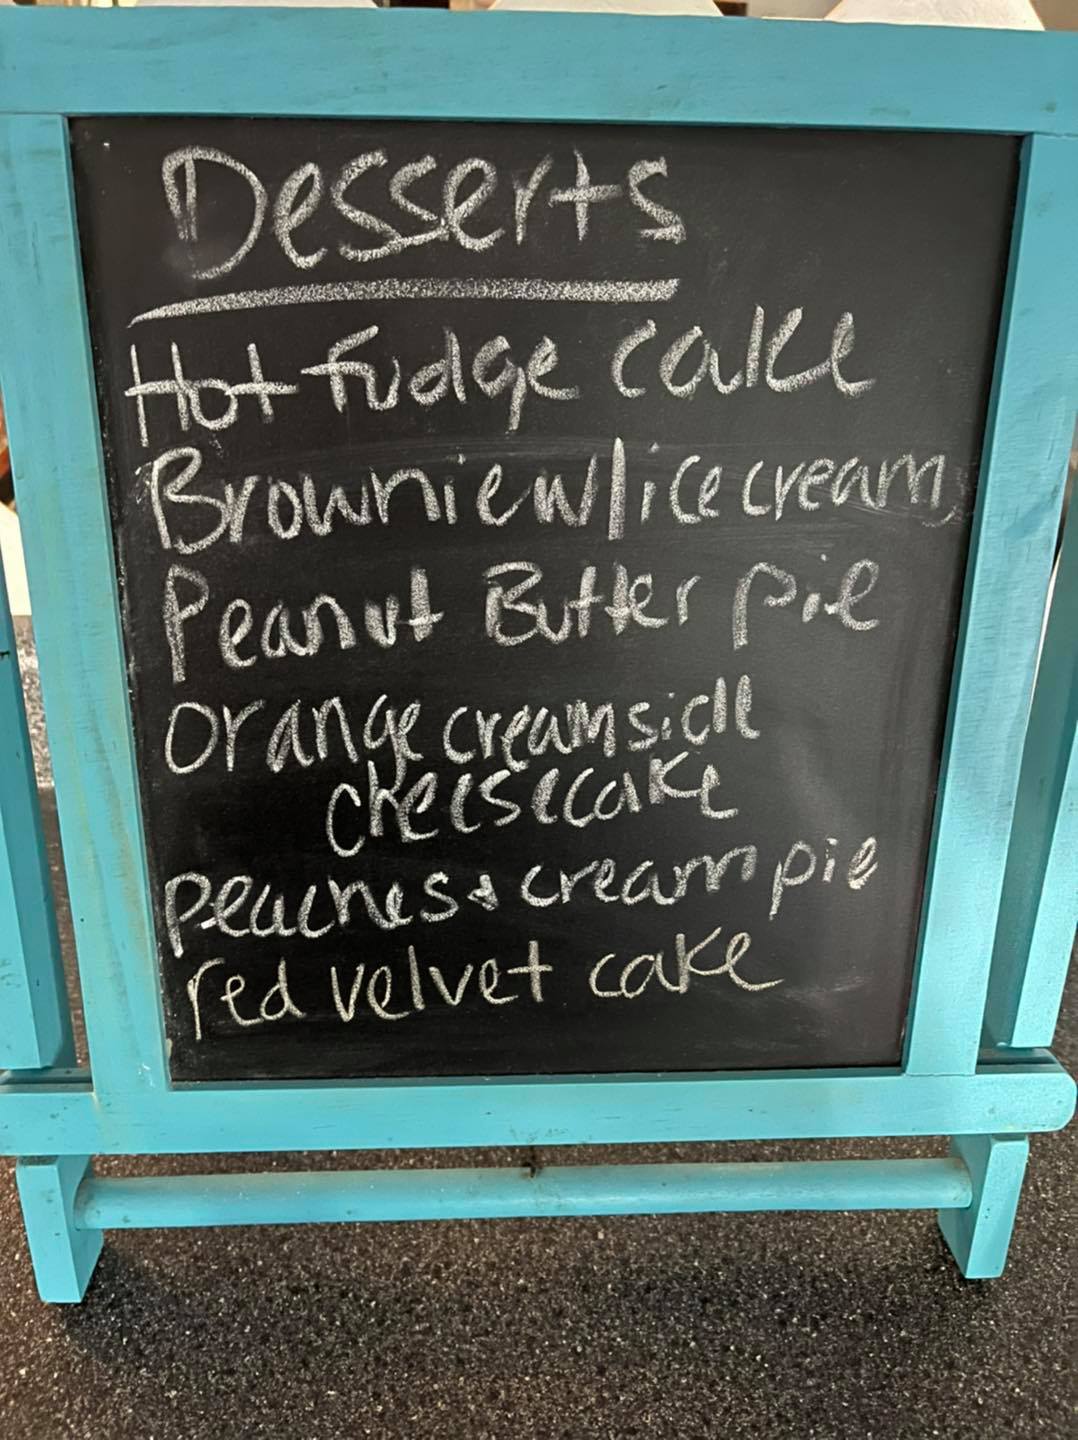 Desserts
Hot fudge cake
Brownie w/ ice cream
Peanut Butter pie
Orange creamsicle
cheesecake
peaches & cream pie
red velvet cake